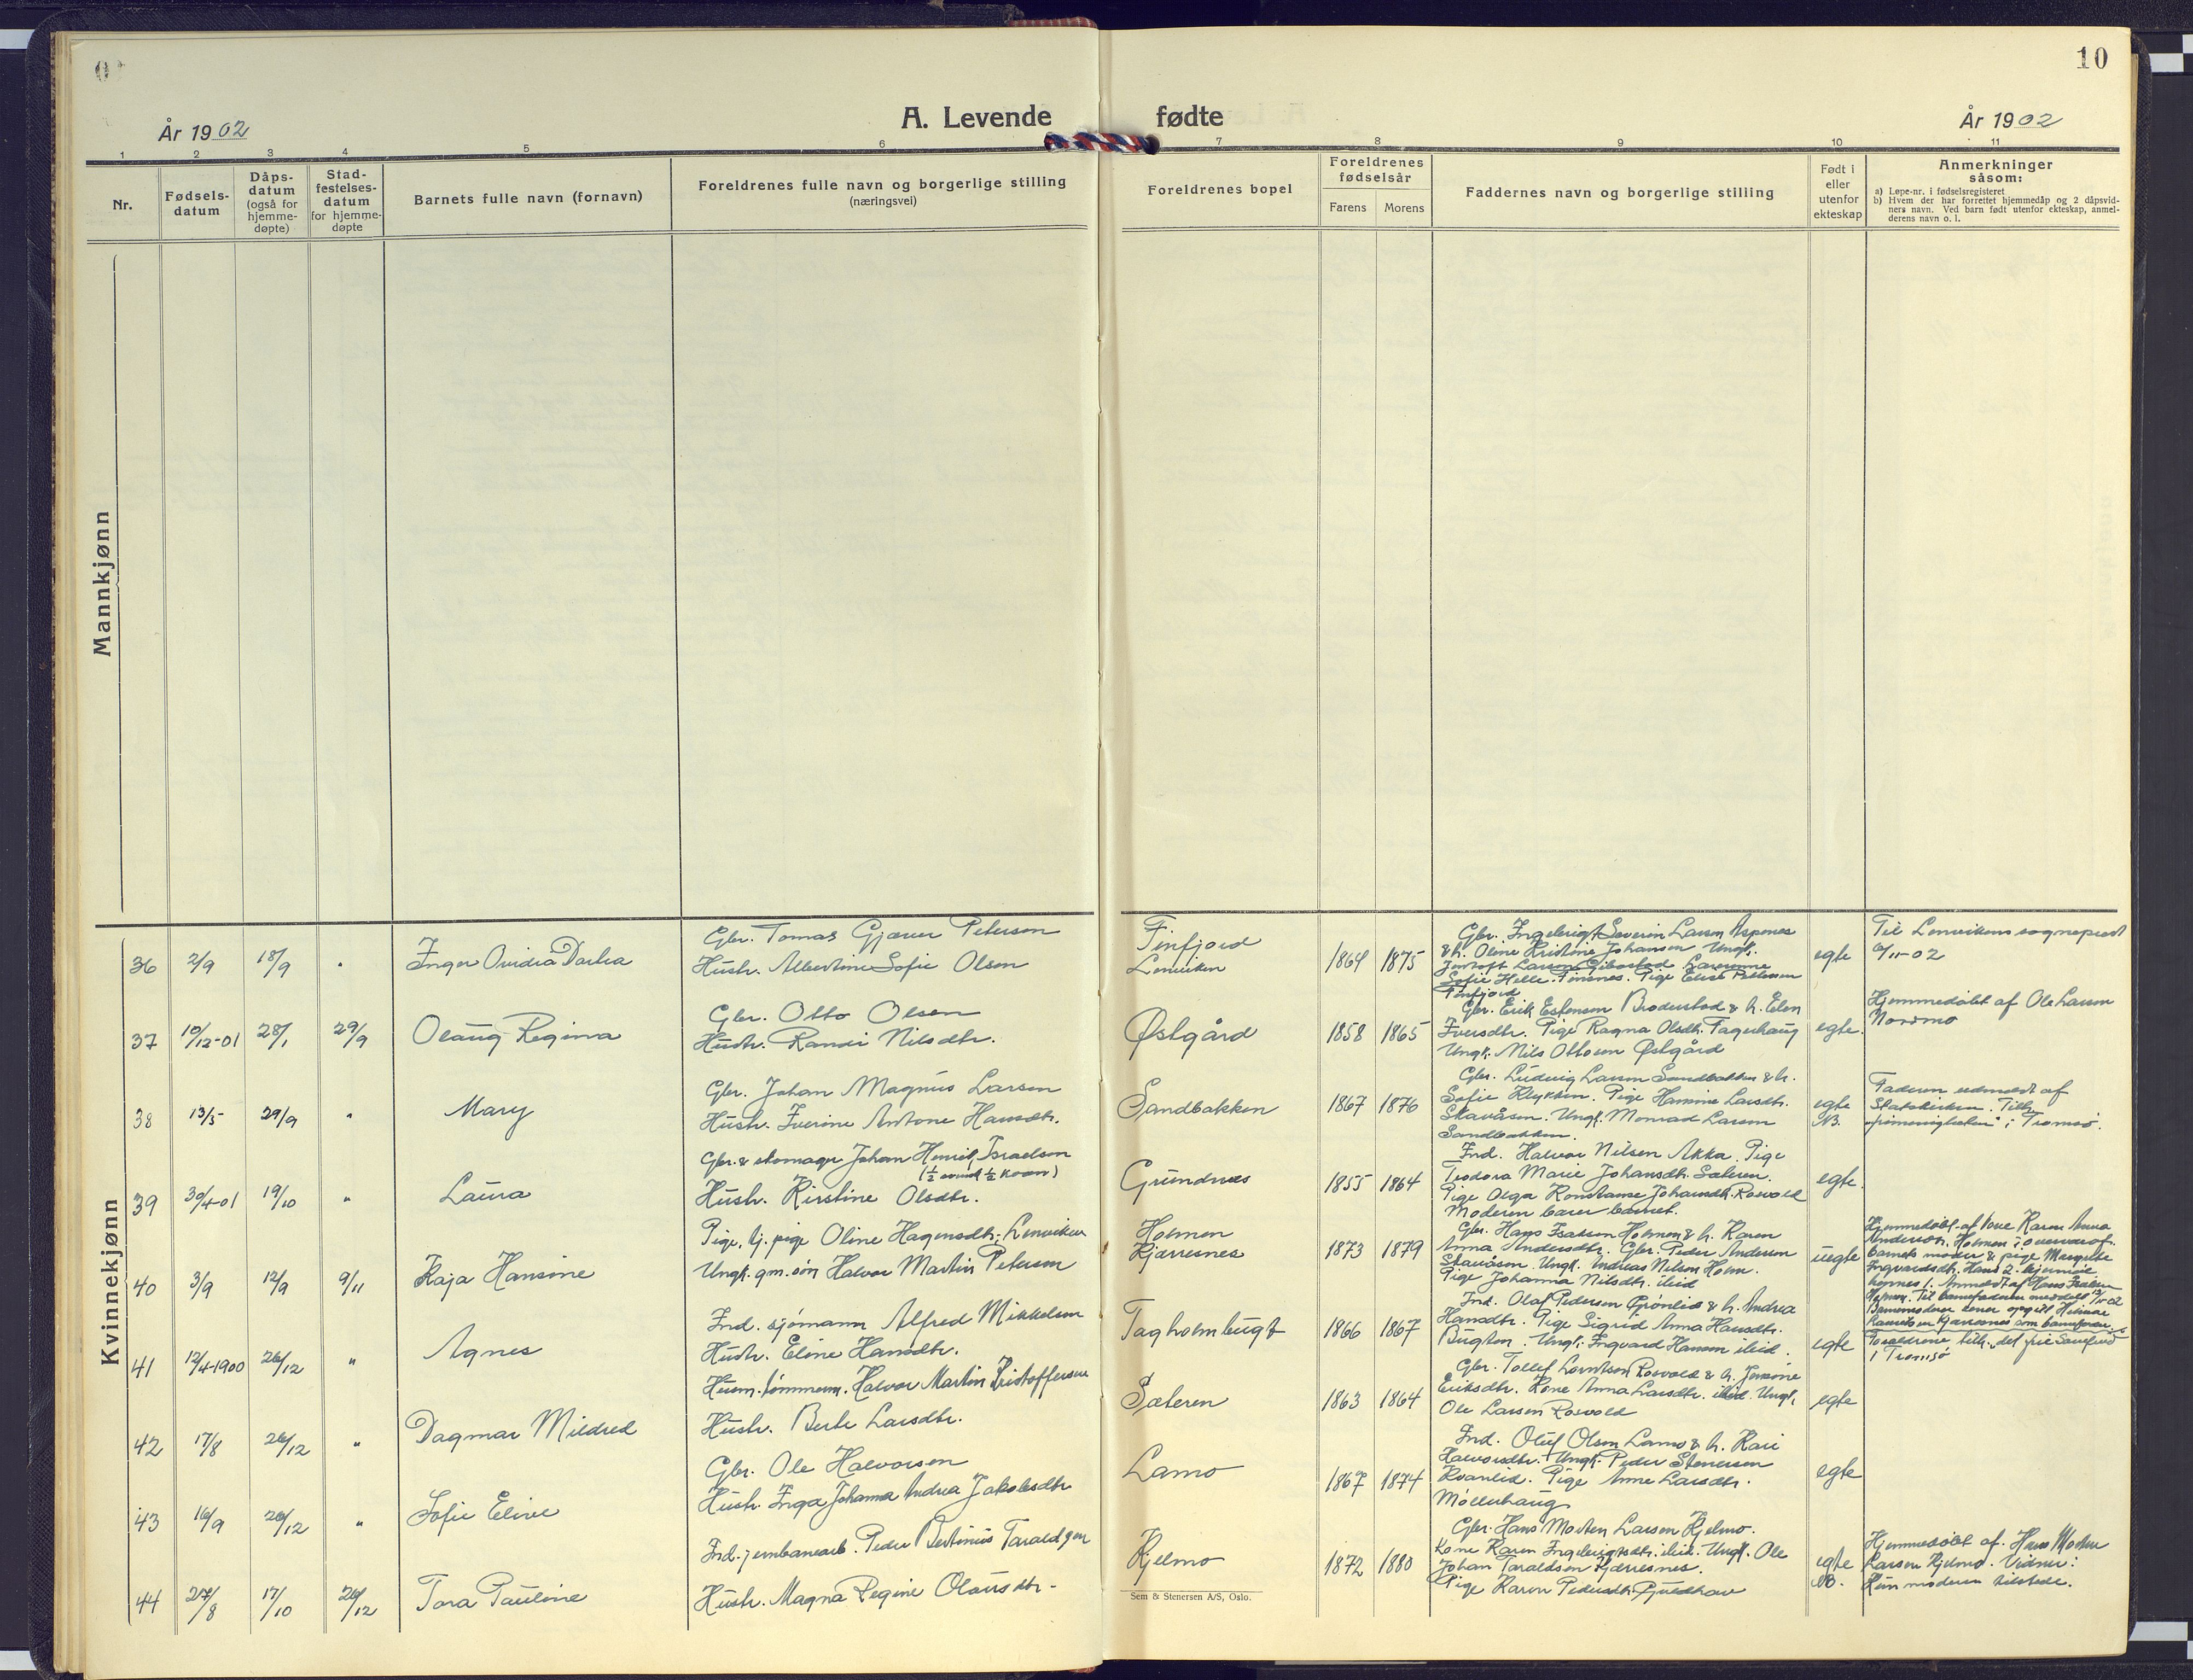 10
År 1902
A. Levende fødte
År 1902
1 2 3 4 5 6 7 8 9 10 11
Nr.
Fødsels-datum
Dåps-datum (også for hjemme-døpte)
Stad-festelses-datum for hjemme-døpte
Barnets fulle navn (fornavn)
Foreldrenes fulle navn og borgerlige stilling (næringsvei)
Foreldrenes bopel
Foreldrenes fødselsår
Farens Morens
Faddernes navn og borgerlige stilling
Født i eller utenfor ekteskap
Anmerkninger såsom:
a) Løpe-nr. i fødselsregisteret
b) Hvem der har forrettet hjemmedåp og 2 dåpsvid-
ners navn. Ved barn født utenfor ekteskap, anmel-
derens navn o. l.
Mannkjønn
Kvinnekjønn
36 2/9 18/9
Inger Ovidia
Gbr. Tomas Gjæver Petersen
Hustr. Albertine Sofie Olsen
Finfjord
Lenviken
1864 1875
Gbr. Ingebrigt Severin Larsen Aspenes
& h. Oline Kristine Johansen Ungk.
Larsen Gibostad
Sofie Helle. Finsnes. Pige Elise Pettersen
Finfjord
egte
Til Lenvikens sogneprest
/11-02
37 10/12-01 28/1 29/9
Olaug Regina
Gbr. Otto Olsen
Hustr. Randi Nilsdtr.
Østgård
1858 1865
Gbr. Erik Estensen Broderstad & h. Elen
Iversdtr. Pige Ragna Olsdtr. Fagerhaug
Ungk. Nils Ottosen Østgård
egte.
Hjemmedøbt af Ole Larsen
Nordmo
38 13/5 29/9 "
Mary
Gbr. Johan Magnus Larsen
Hustr. Iverine Antone Hansdtr.
Sandbakken
1867 1876
Gbr. Ludvig Larsen Sandbakken & h.
Sofie Pige Hanna Larsdtr.
Skavåsen. Ungk. Monrad Larsen
Sandbakken.
egte
NB.
Faderen udmeldt af
Statskirken. Tilh.
i Tromsø.
39 30/4-01 19/10 "
Laura
Gbr. & skomager Johan Henrik Israelsen
Hustr. Kirstine Olsdtr.
Grundnes
1855 1864
Ind. Halvor Nilsen Akka. Pige
Teodora Marie Johansdtr. Sæteren.
Pige Olga Konstanse Johansdtr. Rosvold
Moderen barer barnet.
egte.
40 3/9 12/9 9/11
Kaja Hansine
Pige, tj. pige Oline Hagensdtr., Lenviken
Ungk. gm. søn Halvor Martin Petersen
Holmen
Kjærresnes
1873 1879
Gbr. Hans Isaksen Holmen & h. Karen
Anna Andersdtr. Gbr. Peder Andersen
Skavåsen. Ungk. Andreas Nilsen Holm.
Pige Johanna Nilsdtr. ibid
uegte
Hjemmedøbt af kone Karen Anna
Andersdtr. Holmen i overvær af
barnets moder & pige Margrethe
Ingvardsdtr.
Anmeldt af Hans Isaksen
Holmen. Til barnefaderen meddelt
som barnefar.
41 12/4-1900 26/12 "
Agnes
Ind. sjømann Alfred Mikkelsen
Hustr. Eline Hansdtr.
Tagholmbugt
1866 1867
Ind. Olaf Pedersen Grønlid & h. Andrea
Hansdtr. Pige Sigrid Anna Hansdtr.
Bugten. Ungk. Ingvard Hansen ibid.
egte
Forældrene tilh. det frie Samfund
i Tromsø
42 17/8 26/12 "
Dagmar Mildred
Husm. tømmerm. Halvor Martin Kristoffersen
Hustr. Berte Larsdtr.
Sæteren
1863 1864
Gbr. Tollef Larntsen Rosvold & h.
Eriksdtr. Kone Anna Larsdtr. ibid. Ungk.
Ole Larsen Rosvold
egte
43 16/9 26/12 "
Sofie Elive
Gbr. Ole Halvorsen
Hustr. Inga Johanna Andrea Jakobsdtr
Lamo
1867 1874
Ind. Oluf Olsen Lamo & h. Kari
Halvorsdtr. Ungk. Peder Stenersen
Kvanlid. Pige Anne Larsdtr.
Møllerhaug
egte
44 27/8 17/10 26/12
Tora Pauline
Ind. jernbanearb. Peder Bertinius Taraldsen
Hustr. Magna Regine Olausdtr.
Kjelmo
1872 1880
Gbr. Hans Morten Larsen Kjelmo.
Kone Karen Ingebrigtsdtr. ibid. Ungk. Ole
Johan Taraldsen Kjærresnes.
Pige Karen Pedersdtr.
egte
NB.
Hjemmedøbt af Hans Morten
Larsen Kjelmo. Vidner:
Kun moderen tilstede.
Sem & Stenersen A/S, Oslo.